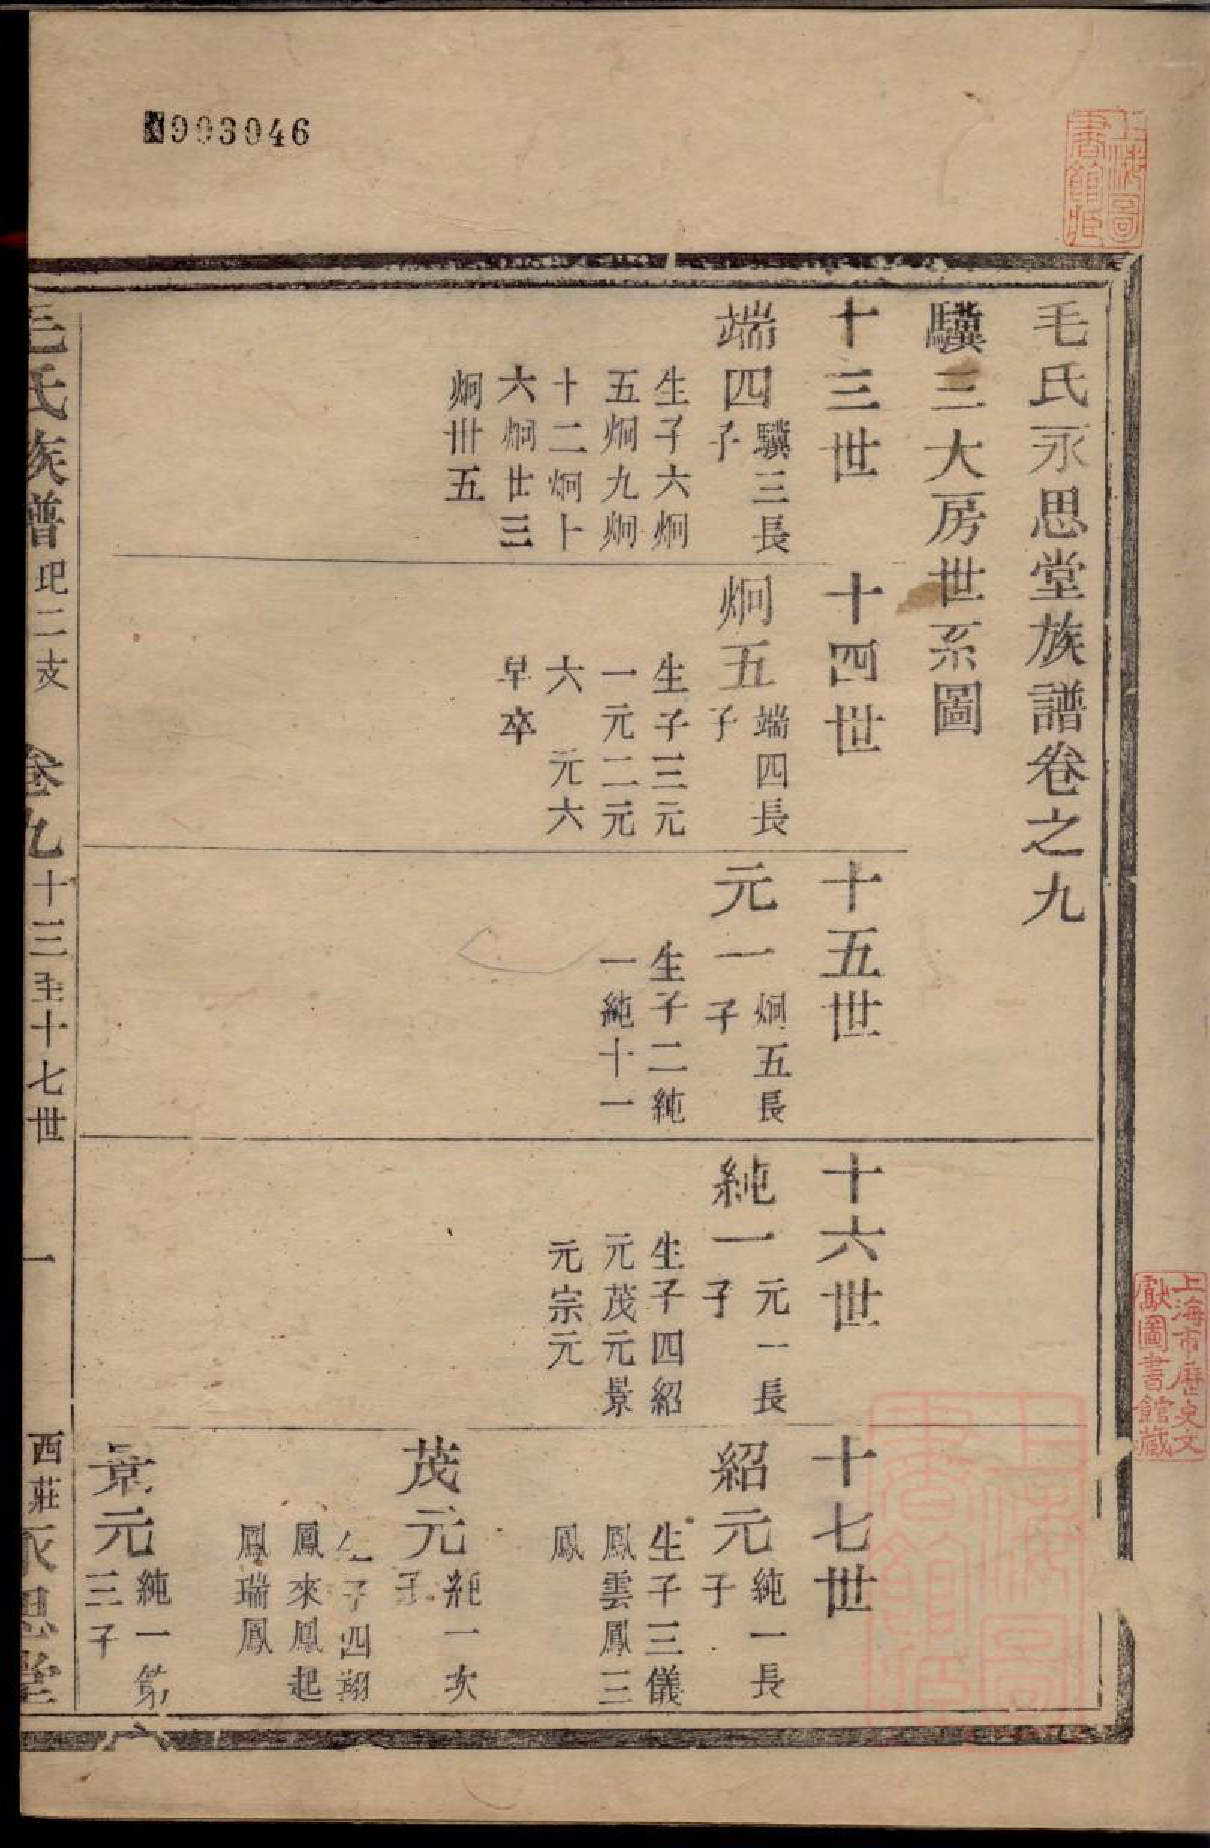 993046
上海圖書館藏
毛氏永思堂族譜卷之九
驥三大房世系圖
十三世
端四
驥三長子
生子六炯
五炯九炯
十二炯卜
六炯廿三
炯卅五
十四世
炯五
端四長子
生子三元
一元二元
六 元六
早卒
十五世
元一
炯五長子
生子二純
一純十一
十六世
純一
元一長子
生子四紹
元茂元景
元宗元
十七世
紹元
純一長子
生子三儀
鳳雲鳳三
鳳
茂元
純一次子
生子四翔
鳳來鳳起
鳳瑞鳳
景元
純一第三子
毛氏族譜 玘二支 卷九 十三至十七世 一 西莊永思堂
上海市歷史文
獻圖書館藏
上海圖書館藏